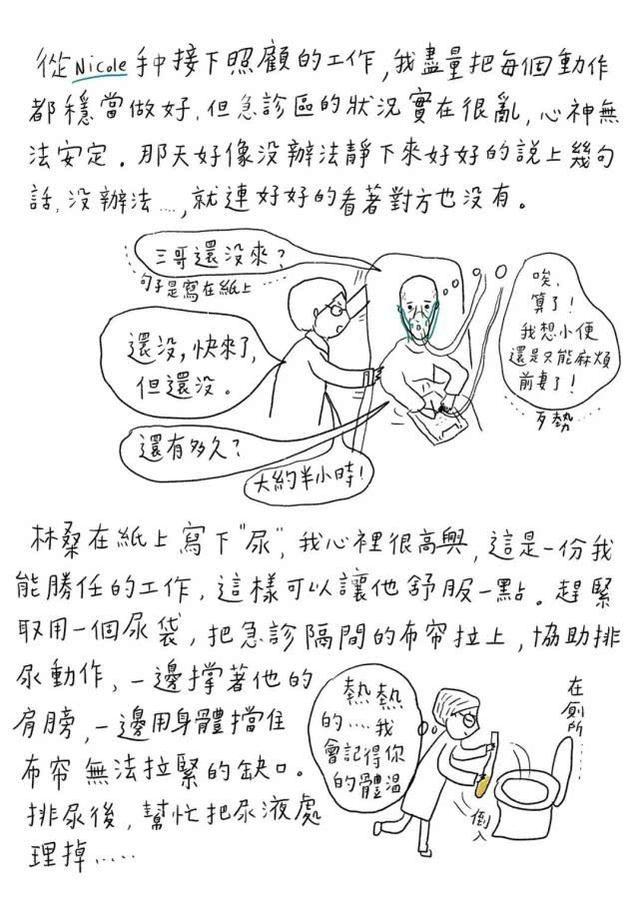 從Nicole手中接下照顧的工作,我盡量把每個動作
都穩當做好,但急診區的狀況實在很亂,心神無
法安定。那天好像沒辦法靜下來好好的說上幾句
話,沒辦法…,就連好好的看著對方也沒有。
三哥還沒來?
句子是寫在紙上
還沒,快來了,
但還沒。
還有多久?
大約半小時!
唉,
算了!
我想小便
還是只能麻煩
前妻了!
歹勢…
林桑在紙上寫下"尿",我心裡很高興,這是一份我
能勝任的工作,這樣可以讓他舒服一點。趕緊
取用一個尿袋,把急診隔間的布帘拉上,協助排
尿動作,一邊撐著他的
肩膀,一邊用身體擋住
布帘無法拉緊的缺口。
排尿後,幫忙把尿液處
理掉……
熱熱
的……我
會記得你
的體溫
在廁所……
倒入